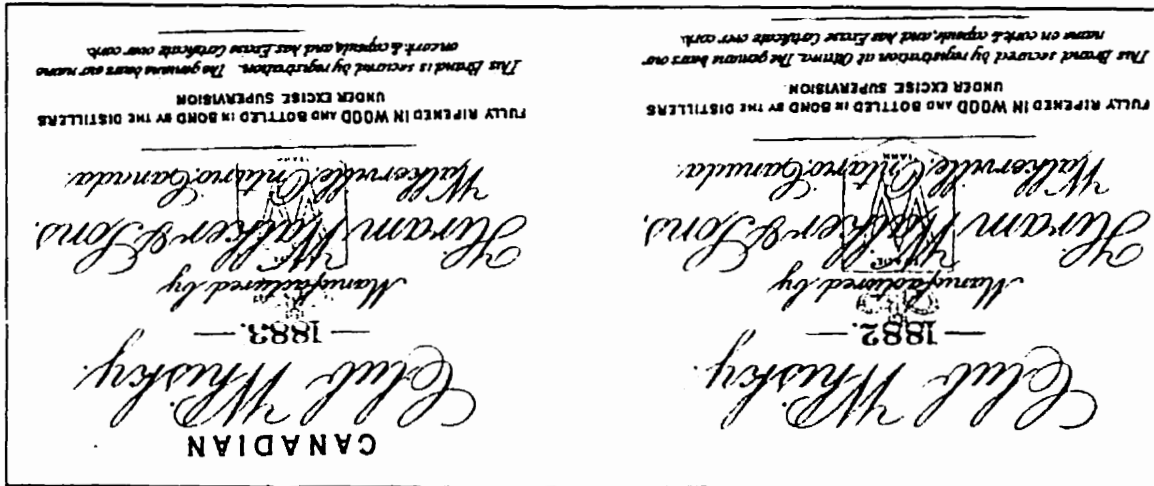 Club Whisky.
— 1882. —
Manufactured by
Hiram Walker & Sons,
Walkerville, Ontario, Canada.
FULLY RIPENED IN WOOD AND BOTTLED IN BOND BY THE DISTILLERS
UNDER EXCISE SUPERVISION
This Brand secured by registration at Ottawa. The genuine bears our
name on cork & capsule, and has Excise Certificate over cork.
CANADIAN
Club Whisky.
— 1883. —
Manufactured by
Hiram Walker & Sons,
Walkerville, Ontario, Canada.
FULLY RIPENED IN WOOD AND BOTTLED IN BOND BY THE DISTILLERS
UNDER EXCISE SUPERVISION
This Brand is secured by registration. The genuine bears our name
on cork & capsule, and has Excise Certificate over cork.